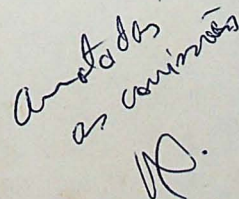 anotadas
as comissões